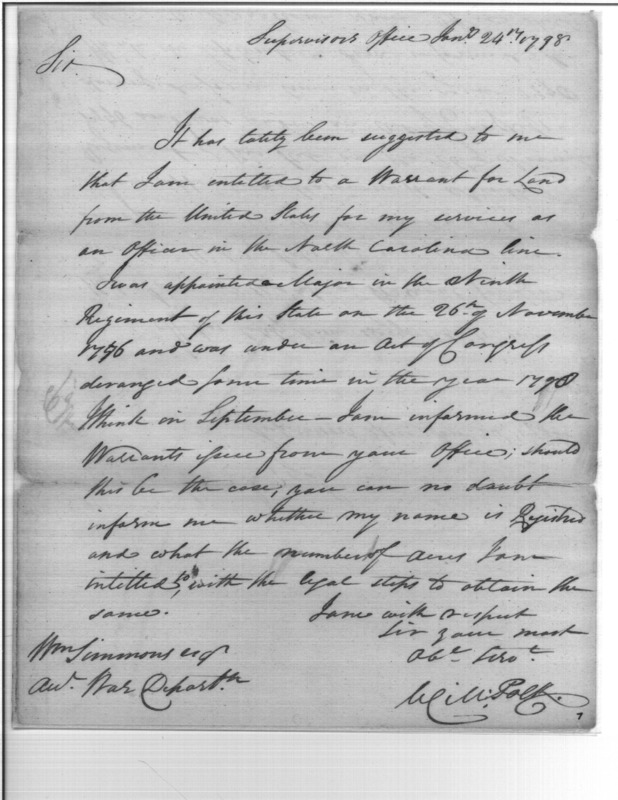 Supervisors Office Jany. 24th 1798
Sir.
It has lately been suggested to me
that I am intitled to a Warrant for Land
from the United States for my services as
an Officer in the North Carolina line.
I was appointed Major in the Ninth
Regiment of this State on the 26th of November
1776 and was under an Act of Congress
deranged some time in the year
think in September – I am informed the
Warrants issue from your Office; should
this be the case, you can no doubt
inform me whether my name is Registred
and what the number of acres I am
intitled to, with the legal steps to obtain the
same. I am with respect
Sir your most
Obt. Servt.
Wm Simmons esqr
Will: Polk.
War Departmt
7